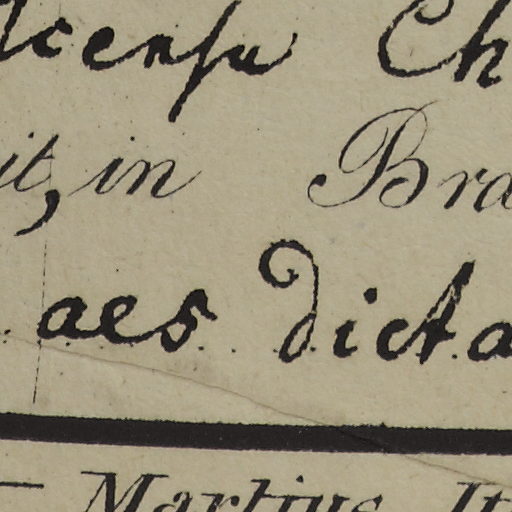 Ch
it, in Bra
aes dicta
— Martius It